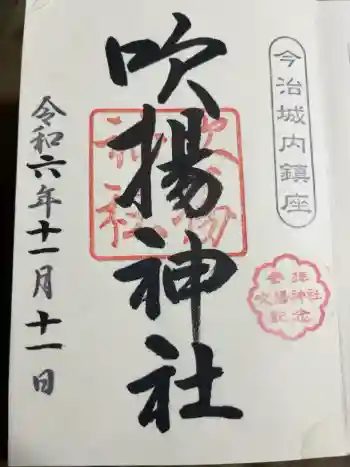 今治城内鎮座
吹揚神社
吹揚
神社
参拝
吹揚神社
記念
令和六年十一月十一日